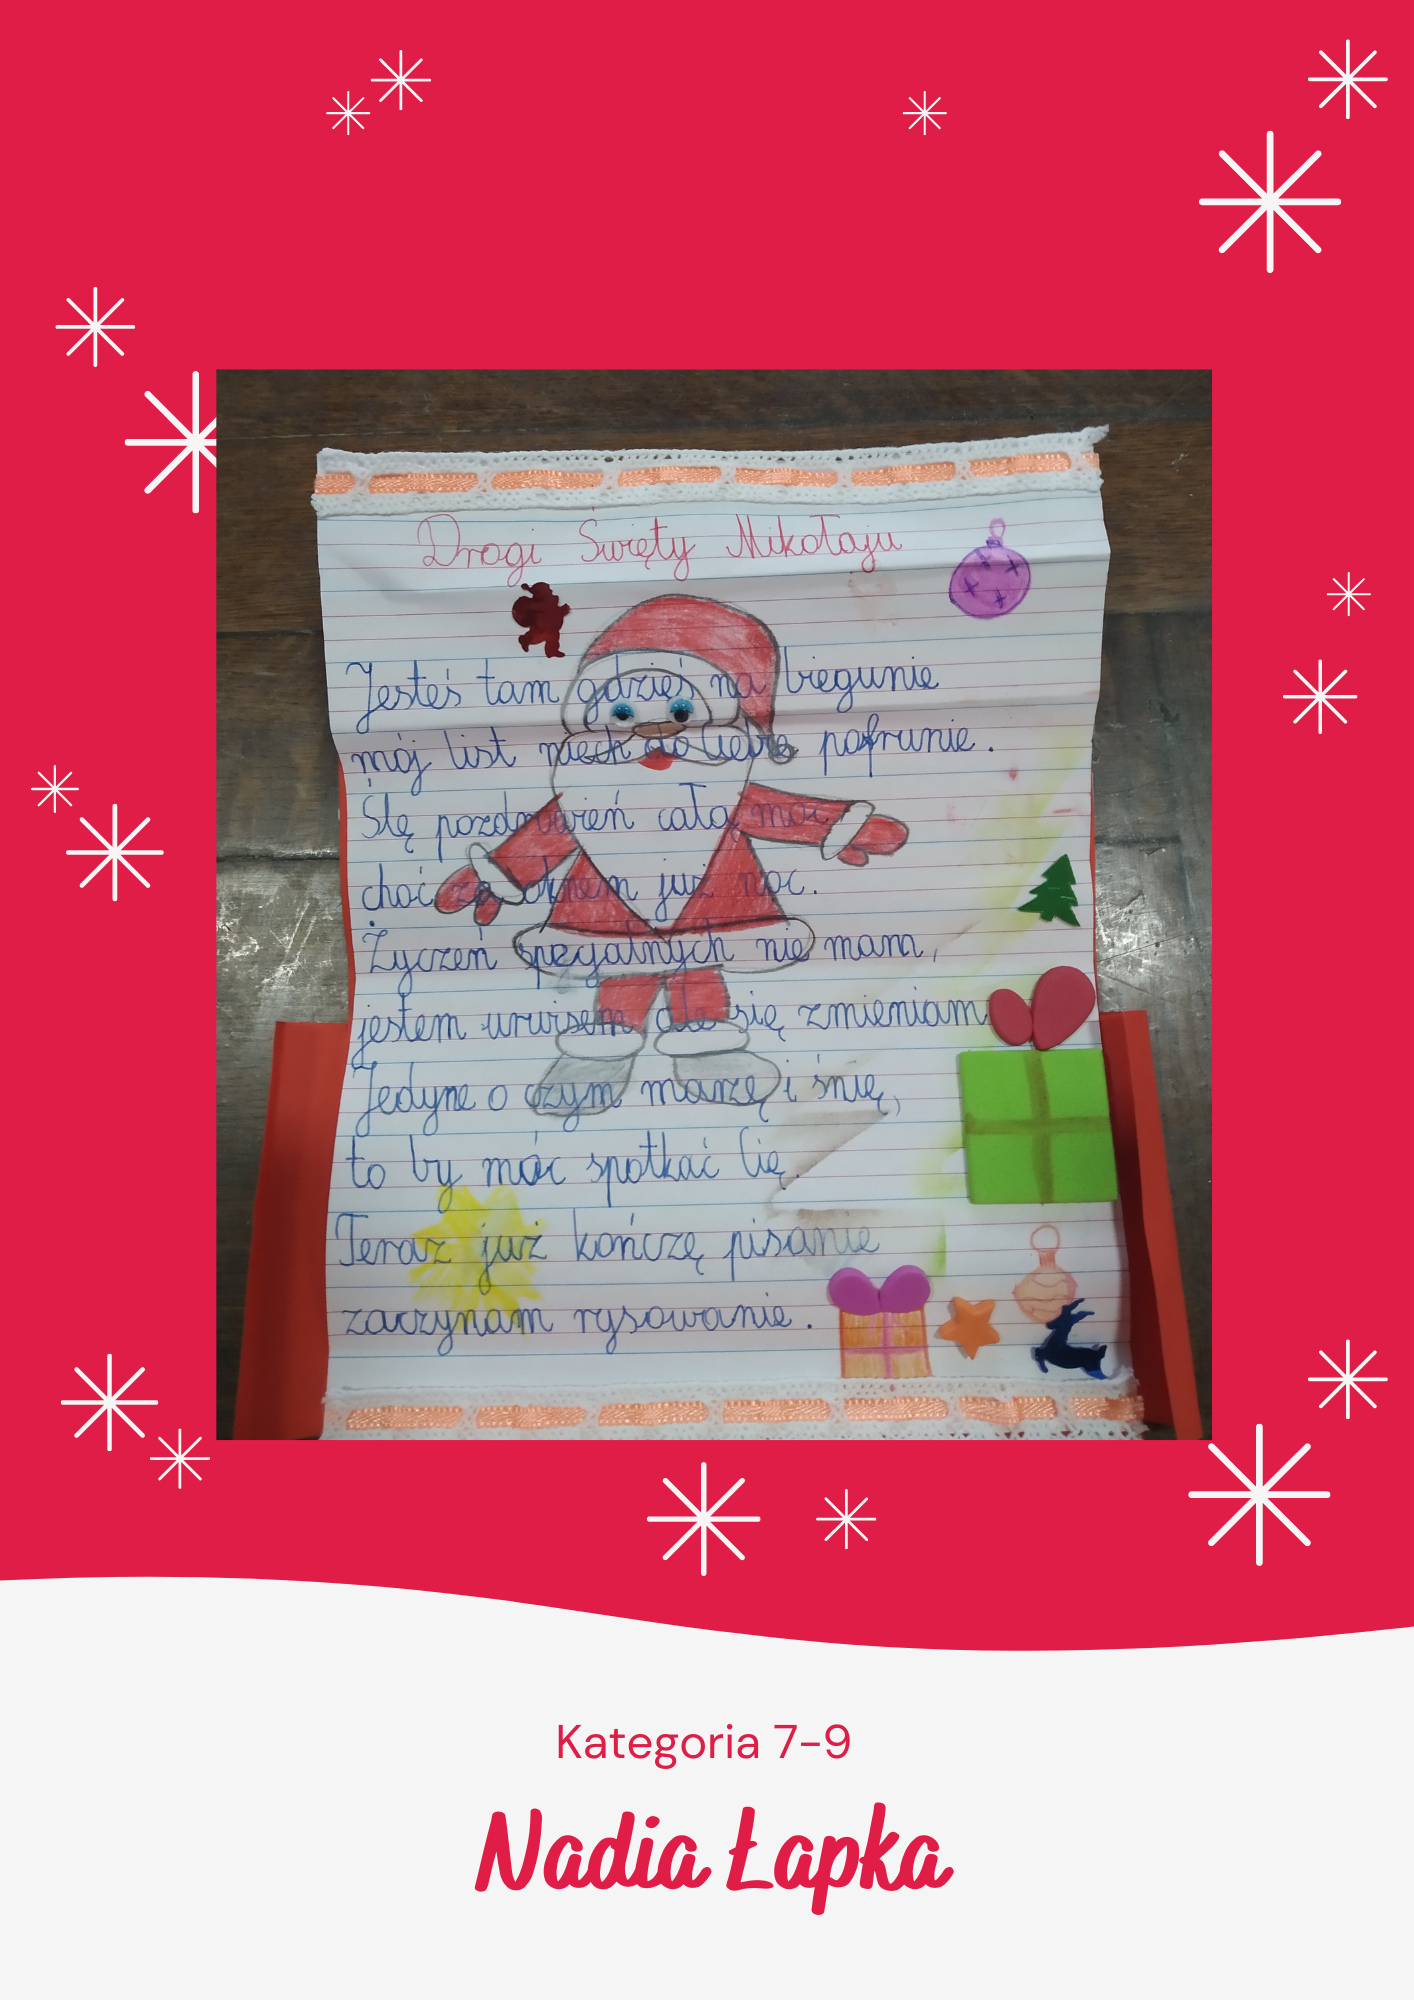 Drogi Święty Mikołaju
Jesteś tam gdzieś na biegunie
mój list niech do Ciebie pofrunie.
Ślę pozdrowień całą moc
choć za oknem już noc.
Życzeń specjalnych nie mam,
jestem urwisem ale się zmieniam
Jedyne o czym marzę i śnię,
to by móc spotkać Cię.
Teraz już kończę pisanie
zaczynam rysowanie.
Kategoria 7-9
Nadia Łapka